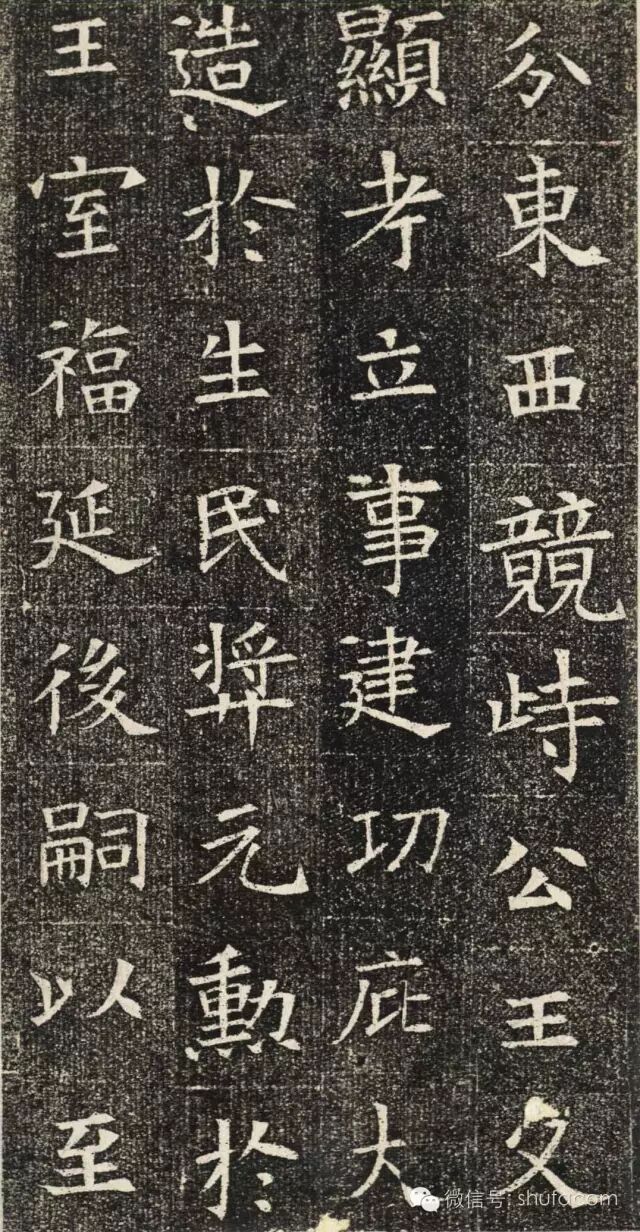 分東西競峙公王文
顯考立事建功庇大
造於生民奬元勳於
王室福延後嗣以至
微信号: shufacom